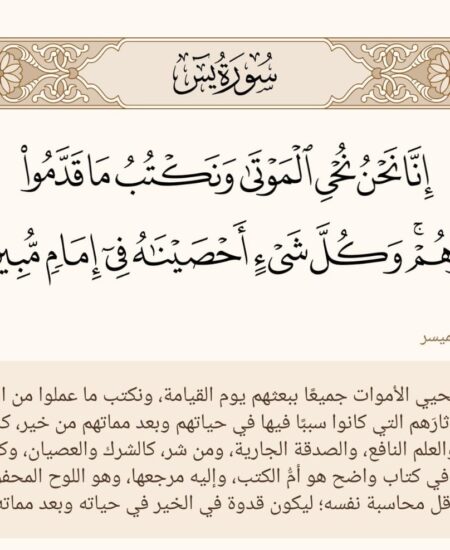 سُورَةُ يسٓ
إِنَّا نَحۡنُ نُحۡيِ ٱلۡمَوۡتَىٰ وَنَكۡتُبُ مَا قَدَّمُواْ
رَهُمۡۚ وَكُلَّ شَيۡءٍ أَحۡصَيۡنَٰهُ فِيٓ إِمَامٖ مُّبِي
ميسر
حيي الأموات جميعًا ببعثهم يوم القيامة، ونكتب ما عملوا من ا
ثارَهم التي كانوا سببًا فيها في حياتهم وبعد مماتهم من خير، ك
والعلم النافع، والصدقة الجارية، ومن شر، كالشرك والعصيان، وك
في كتاب واضح هو أمُّ الكتب، وإليه مرجعها، وهو اللوح المحفو
قل محاسبة نفسه؛ ليكون قدوة في الخير في حياته وبعد مماته